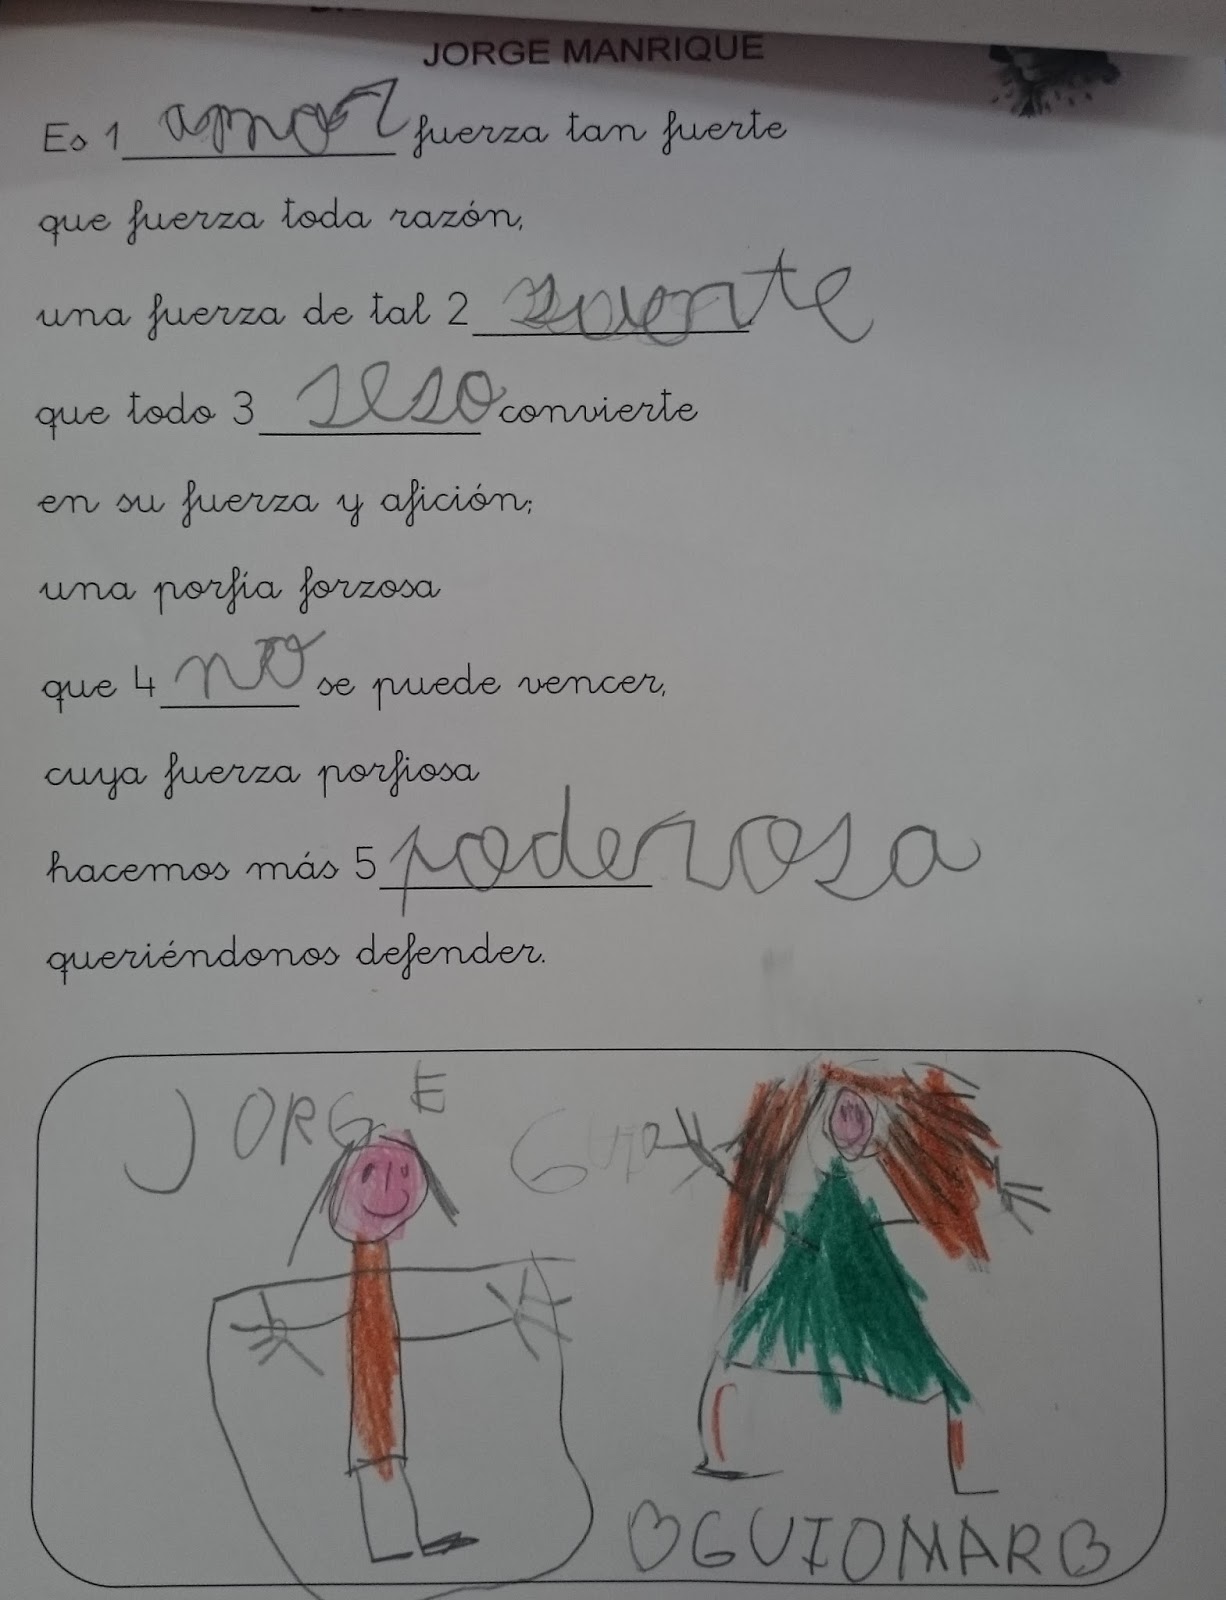 JORGE MANRIQUE
Es 1 amor fuerza tan fuerte
que fuerza toda razón,
una fuerza de tal 2 suerte
que todo 3 seso convierte
en su fuerza y afición;
una porfía forzosa
que 4 no se puede vencer,
cuya fuerza porfiosa
hacemos más 5 poderosa
queriéndonos defender.
JORGE
GUIOMAR